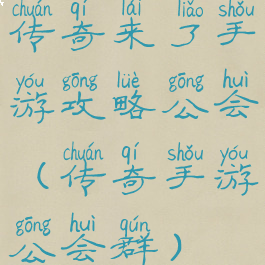 chuán qí lái liǎo shǒu
传奇来了手
yóu gōng lüè gōng huì
游攻略公会
chuán qí shǒu yóu
（传奇手游
gōng huì qún
公会群）